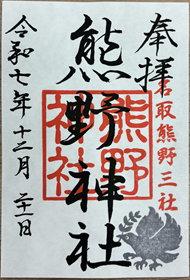 奉拝
名取熊野三社
熊野神社
熊野神社
令和七年十二月二十一日